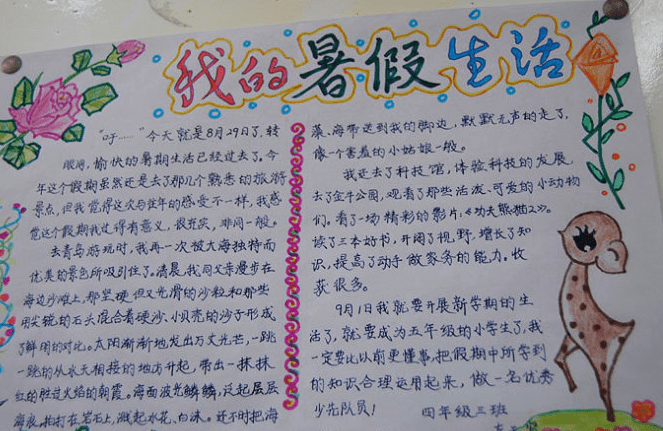 我的暑假生活
“哎……”今天就是8月29日了,转
眼间,愉快的暑期生活已经过去了。今
年这个假期虽然还是去了那几个熟悉的旅游
景点,但我觉得这次与往年的感受不一样,我感
觉这个假期我过得有意义、很充实,非同一般。
去青岛游玩时,我再一次被大海独特而
优美的景色所吸引住了。清晨,我同父亲漫步在
海边沙滩上,那坚硬但又光滑的沙粒和那些
用尖锐的石头混合着硬沙、小贝壳的沙子形成
了鲜明的对比。太阳渐渐地发出万丈光芒,一跳
一跳的从水天相接的地方开起,带出一抹抹
红的胜过火焰的朝霞。海面波光鳞鳞,泛起层层
海浪,拍打在岩石上,溅起水花、白沫。还不时把海
藻、海带送到我的脚边,默默无声的走了,
像一个害羞的小姑娘一般。
我还去了科技馆,体验科技的发展,
去了金牛公园,观看了那些活泼、可爱的小动物
们,看了一场精彩的影片,《功夫熊猫2》。
读了三本好书,开阔了视野,增长了知
识,提高了动手做家务的能力,收
获很多。
9月1日我就要开展新学期的生
活了,就要成为五年级的小学生了,我
一定要比以前更懂事,把假期中所学到
的知识合理运用起来,做一名优秀
少先队员!
四年级三班